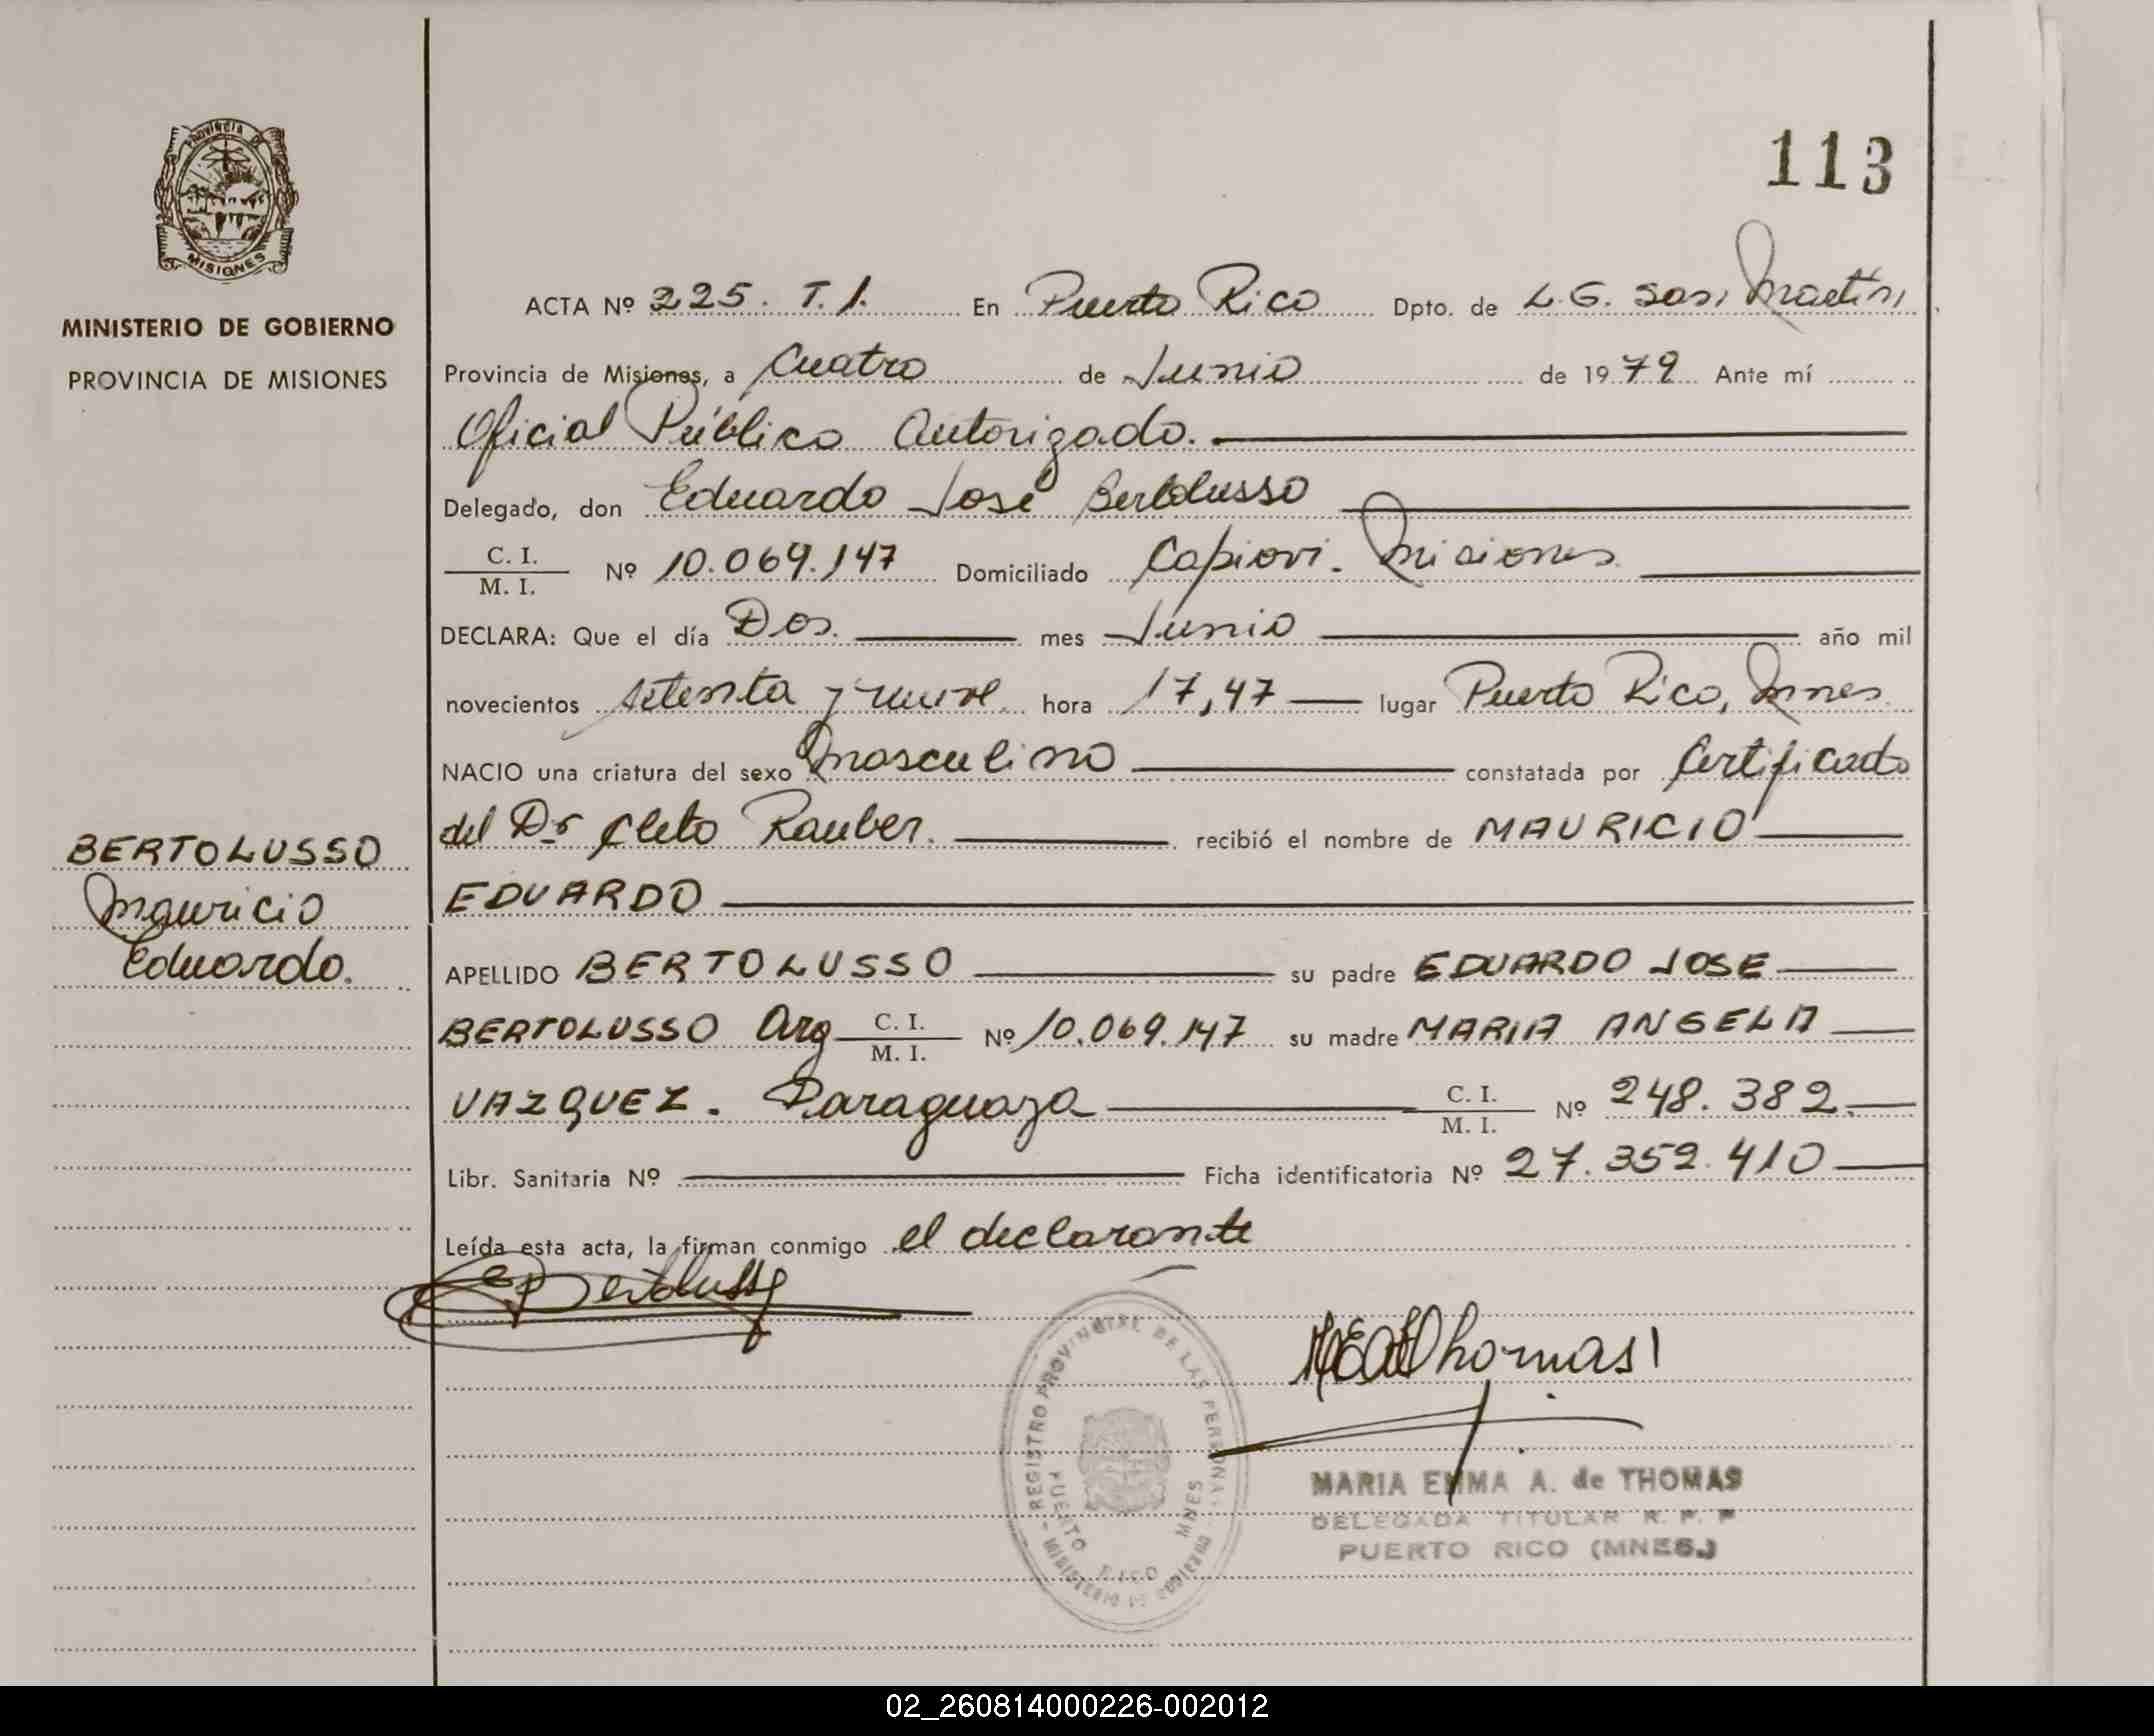 113
PROVINCIA DE
MISIONES
MINISTERIO DE GOBIERNO
PROVINCIA DE MISIONES
ACTA Nº 225. T. I. En Puerto Rico Dpto. de L.G. San Martin,
Provincia de Misiones, a Cuatro de Junio de 1979 Ante mí
Oficial Público Autorizado.
Delegado, don Eduardo José Bertolusso
C. I. / M. I. Nº 10.069.147 Domiciliado Capiovi. Misiones
DECLARA: Que el día Dos. mes Junio año mil
novecientos setenta y nueve hora 17,47 lugar Puerto Rico, Mnes.
NACIO una criatura del sexo masculino constatada por Certificado
del Dr Cleto Rauber. recibió el nombre de MAURICIO
EDUARDO
BERTOLUSSO
Mauricio
Eduardo.
APELLIDO BERTOLUSSO su padre EDUARDO JOSE
BERTOLUSSO Arg C. I. / M. I. Nº 10.069.147 su madre MARIA ANGELA
VAZQUEZ. Paraguaya C. I. / M. I. Nº 248.382.
Libr. Sanitaria Nº Ficha identificatoria Nº 27.352.410
Leída esta acta, la firman conmigo el declarante
EBertolusso
MEAdThomas
REGISTRO PROVINCIAL DE LAS PERSONAS
MINISTERIO DE GOBIERNO
PUERTO RICO MNES
MARIA EMMA A. de THOMAS
DELEGADA TITULAR R. P. P
PUERTO RICO (MNES.)
02_260814000226-002012